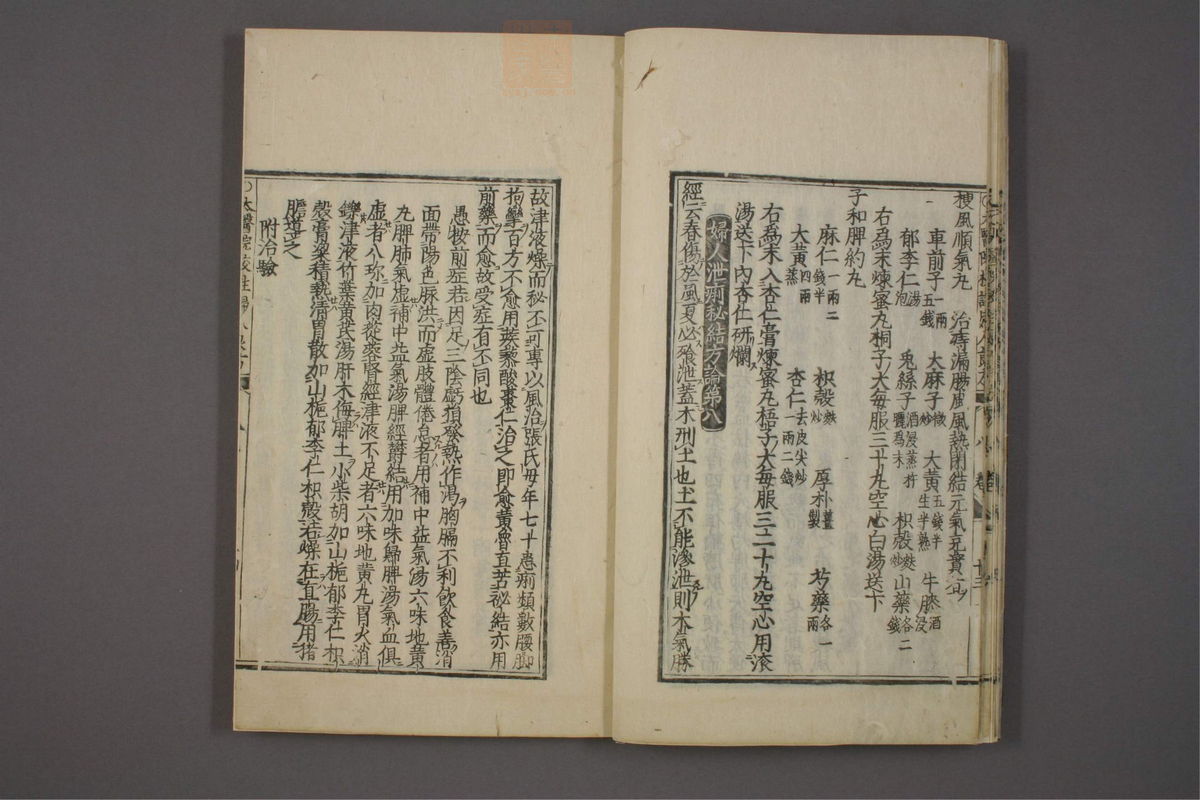 梗風順氣丸　治痔漏腸風風熱閉結元氣充實
車前子一兩五錢　大麻子微炒　大黃五錢半生半熟　牛膝酒浸
郁李仁湯泡　兎絲子酒浸蒸杵曬爲末　枳殼麩炒　山藥各二錢
右爲末煉蜜丸桐子大每服三十九空心白湯送下
子和脾約丸
麻仁一兩二錢半　枳殼麩炒　厚朴薑製　芍藥各一兩
大黃四兩蒸　杏仁去皮尖炒一兩二錢
右爲末入杏仁膏煉蜜丸梧子大每服三二十九空心用滾
湯送下內杏仁研爛
婦人泄痢秘結方論第八
經云春傷於風夏必飱泄蓋木刑土也土不能滲泄則木氣勝
故津液燥而秘不可專以風治張氏母年七十患痢類數腰脚
拘攣百方不愈用蒺藜酸棗仁治之即愈黃魯直苦祕結亦用
前藥而愈故受症有不同也
愚按前症若因足三陰虧損發熱作渴胸膈不利飲食善消
面帶陽色脉洪而虛肢體倦怠者用補中益氣湯六味地黃
丸脾肺氣虛補中益氣湯脾經鬱結用加味歸脾湯氣血俱
虛者八珍加肉蓯蓉腎經津液不足者六味地黃丸胃火消
鑠津液竹葉黃芪湯肝木侮脾土小柴胡加山梔郁李仁枳
殼膏粱積熱清胃散加山梔郁李仁枳殼若燥在直腸用猪
膽導之
附治驗